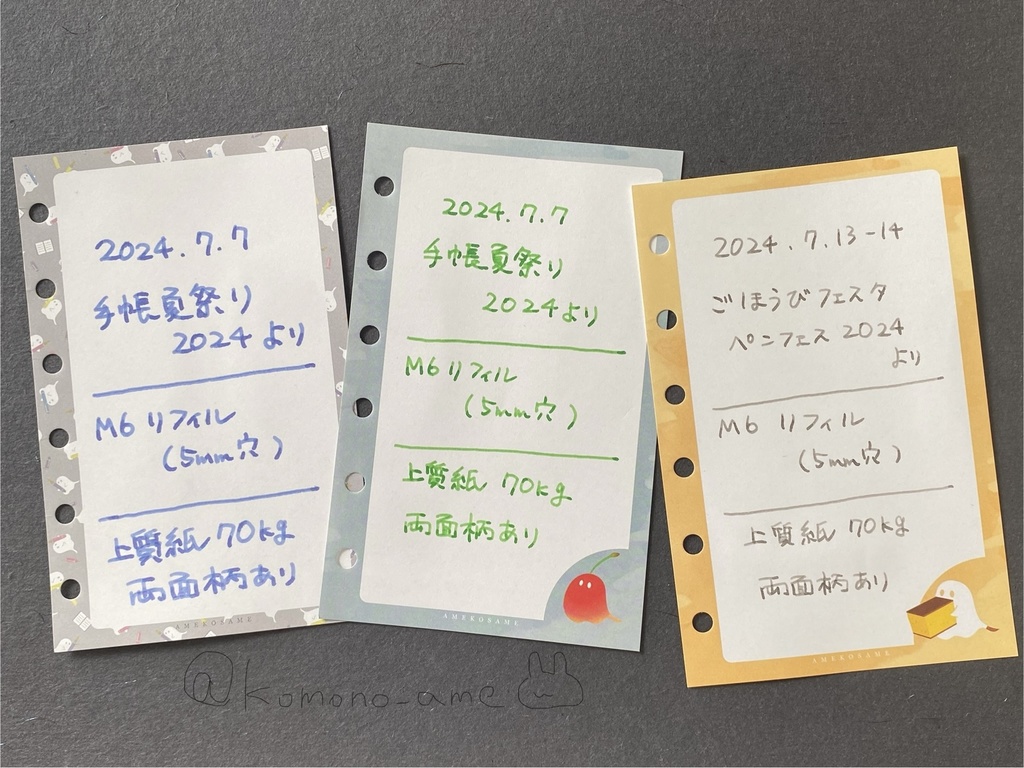 2024.7.7
手帳夏祭り
2024より
M6リフィル
(5mm穴)
上質紙 70kg
両面柄あり
AMEKOSAME
2024.7.7
手帳夏祭り
2024より
M6リフィル
(5mm穴)
上質紙 70kg
両面柄あり
AMEKOSAME
2024.7.13-14
ごほうびフェスタ
ペンフェス 2024
より
M6 リフィル
(5mm穴)
上質紙 70kg
両面柄あり
AMEKOSAME
@komono_ame